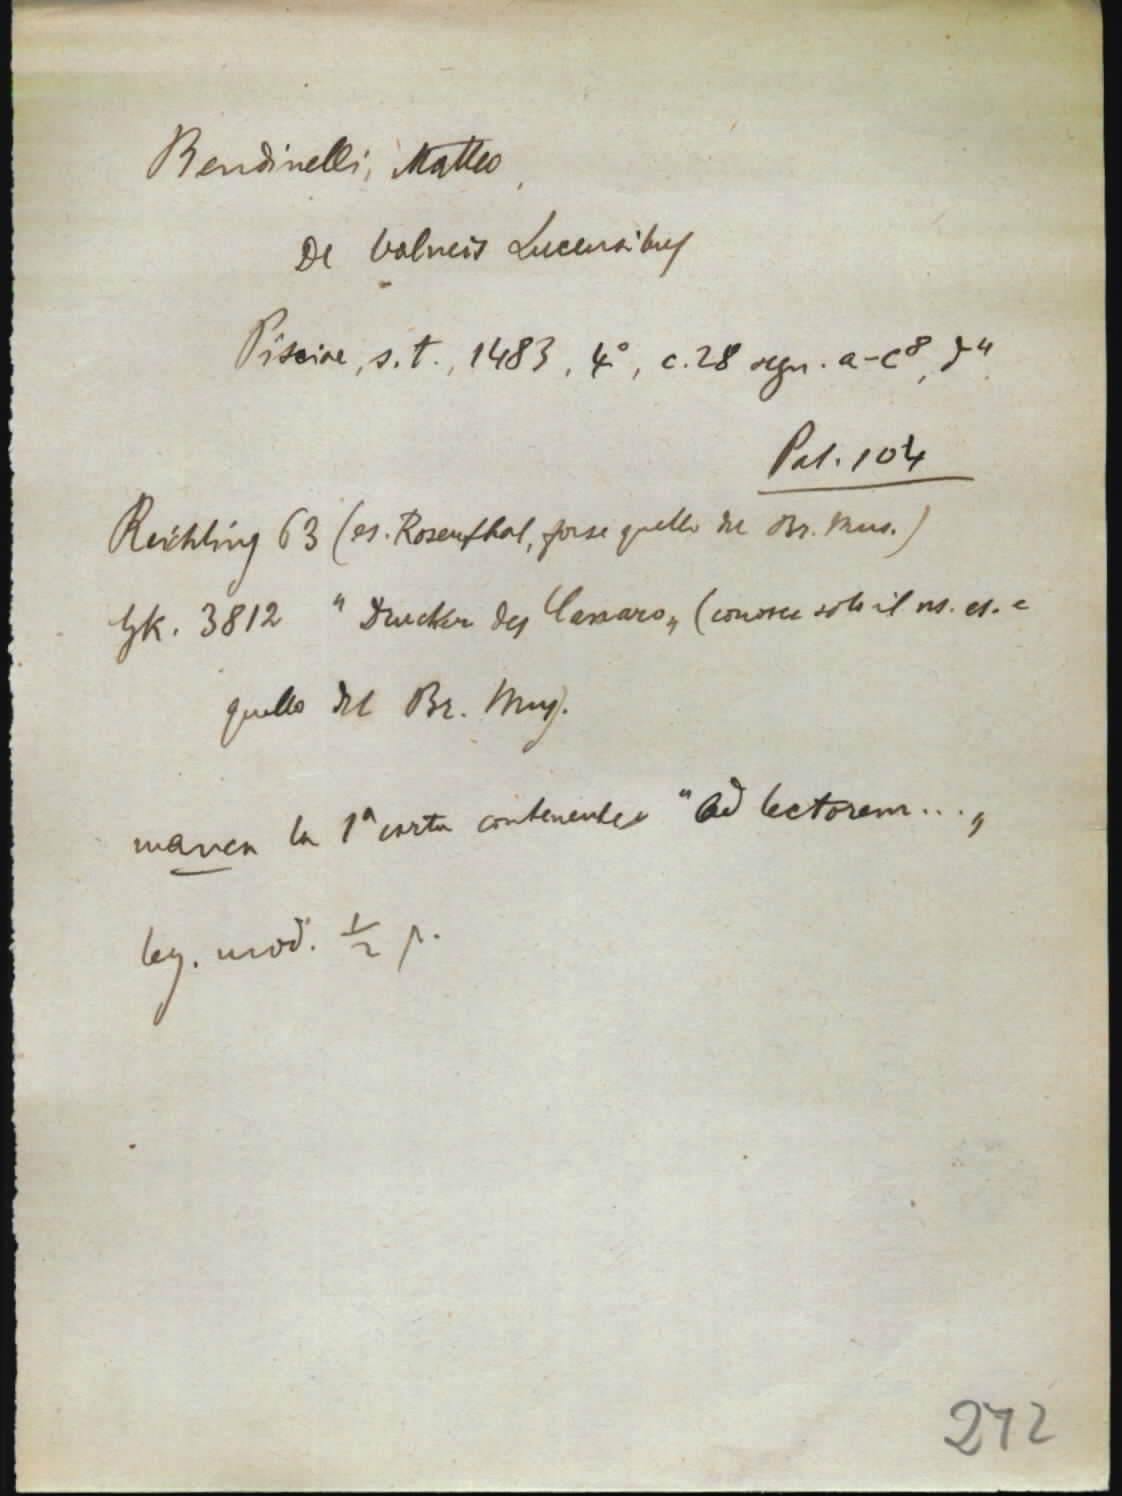 Bendinelli, Matteo,
De balneis Lucensibus
Pisciae, s.t., 1483, 4°, c. 28 segn. a-c⁸, d⁴
Pal. 104
Reichling 63 (es. Rosenthal, forse quello del Br. Mus.)
Gk. 3812 "Drucker des Cansaro„ (conosce solo il ns. es. e
quello del Br. Mus.
manca la 1ª carta contenente "Ad lectorem...„
leg. mod. ½ p.
272